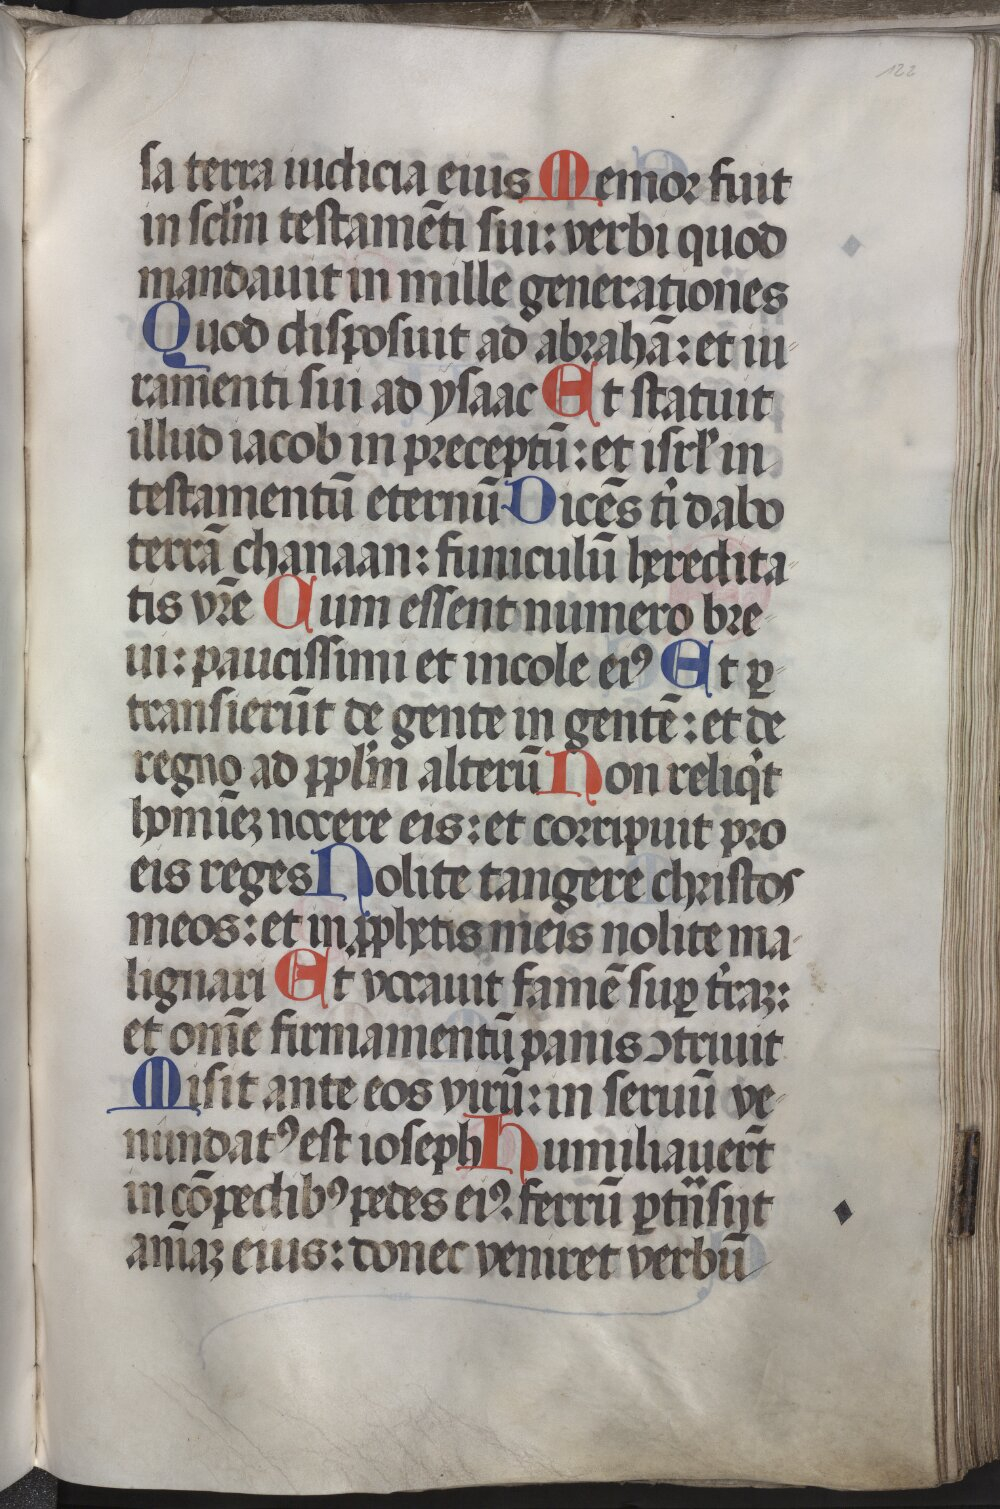 122
sa terra iudicia eius Memor fuit
in sclm̄ testamēti sui: verbi quod
mandauit in mille generationes
Quod disposuit ad abrahā: et iu-
ramenti sui ad ysaac Et statuit
illud iacob in preceptū: et isrl' in
testamentū eternū Dicēs ti dabo
terrā chanaan: funiculū heredita-
tis vr̄e Cum essent numero bre-
ui: paucissimi et incole eiꝰ Et ꝑ-
transierūt de gente in gentē: et de
regno ad ppl'm alterū Non reliqͥt
homīeꝫ nocere eis: et corripuit pro
eis reges Nolite tangere christos
meos: et in pphetis meis nolite ma-
lignari Et vocauit famē suꝑ t'raꝫ:
et om̄e firmamentū panis ꝯtriuit
Misit ante eos virū: in seruū ve-
nundatꝰ est ioseph Humiliauer̄t
in cōpedibꝰ pedes eiꝰ: ferrū ꝑtiisijt
aīaꝫ eius: donec veniret verbū